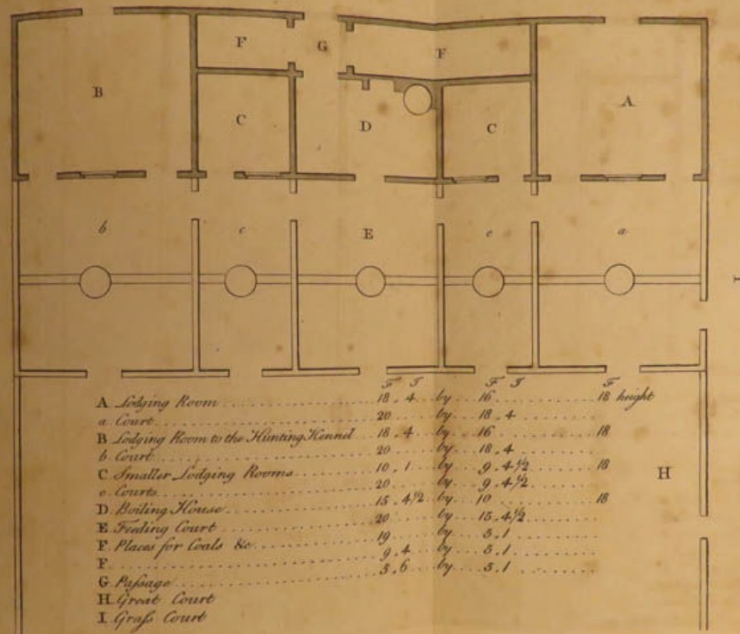 F G F
B A
C D C
b c E c a
I
F I F I F
A Lodging Room 18 . 4 by 16 18 height
a Court 20 by 18 . 4
B Lodging Room to the Hunting Kennel 18 . 4 by 16 18
b Court 20 by 18 . 4
C Smaller Lodging Rooms 10 . 1 by 9 . 4½ 18
c Courts 20 by 9 . 4½
D Boiling House 15 . 4½ by 10 18
E Feeding Court 20 by 15 . 4½
F Places for Coals &c 19 by 5 . 1
F 9 . 4 by 5 . 1
G Paſsage 5 . 6 by 5 . 1
H Great Court
I Graſs Court
H